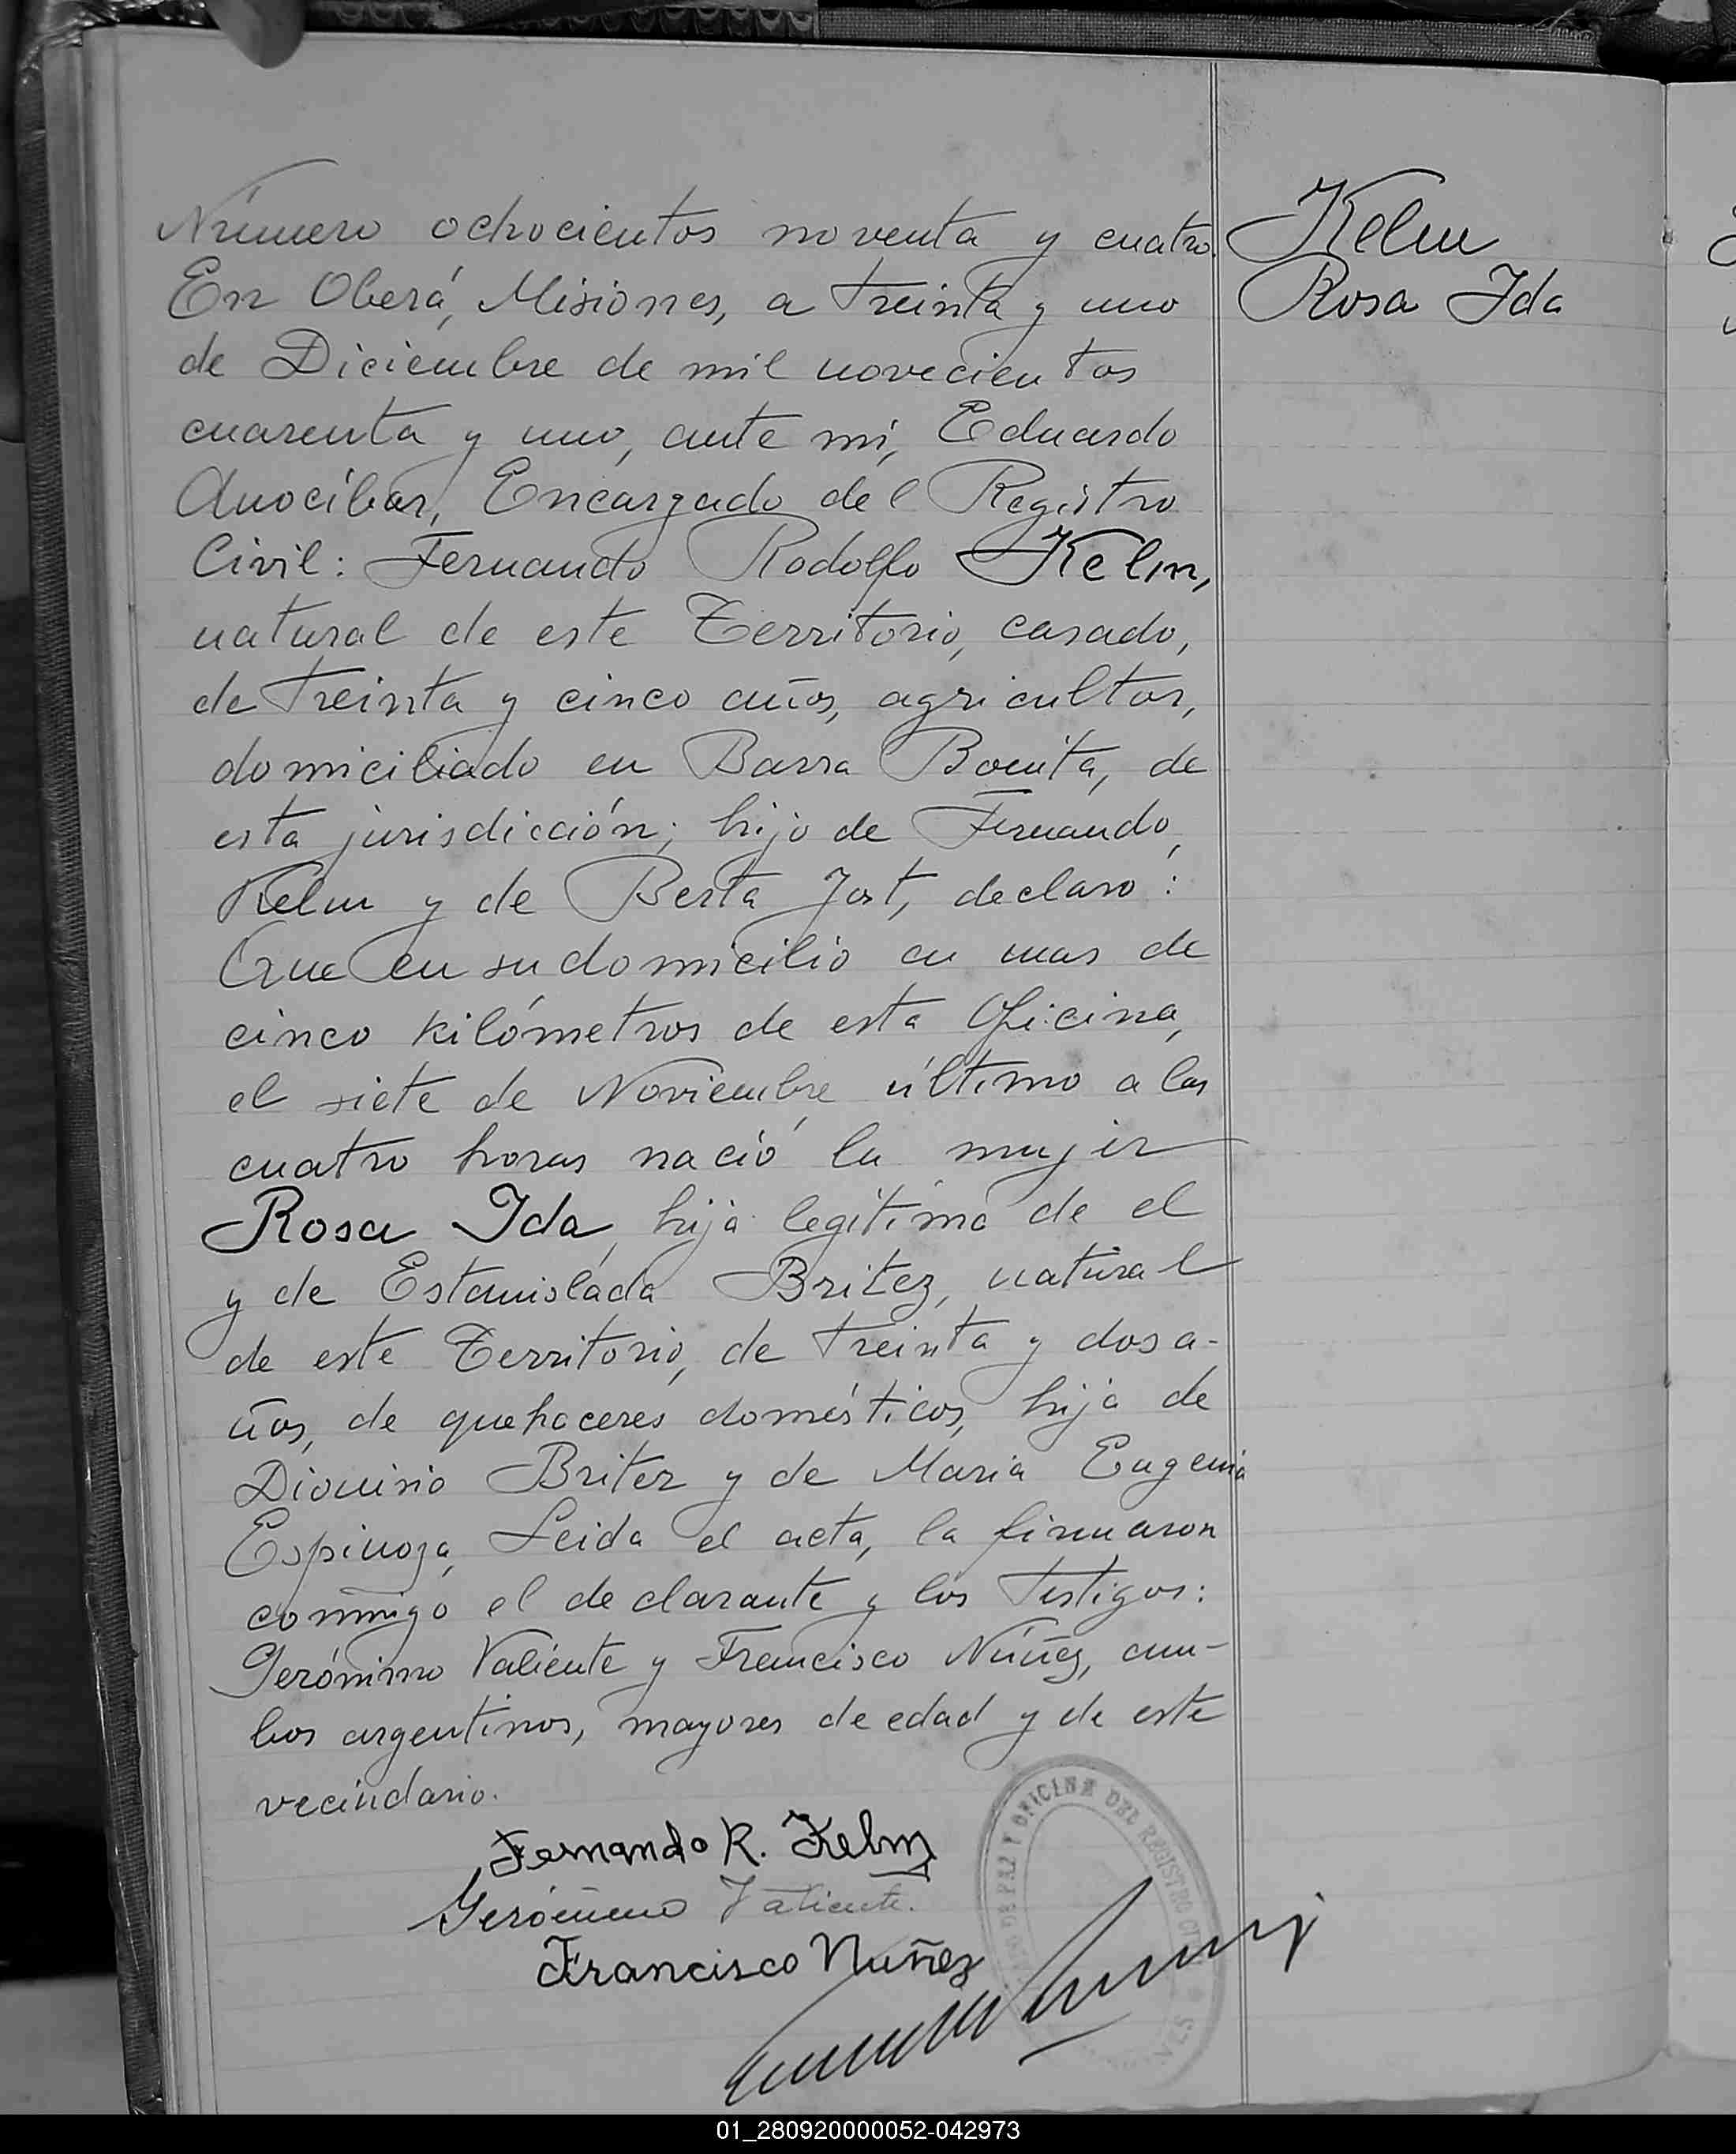 Número ochocientos noventa y cuatro.
Kelm
En Oberá, Misiones, a treinta y uno
Rosa Ida
de Diciembre de mil novecientos
cuarenta y uno, ante mí, Eduardo
Anocíbar, Encargado del Registro
Civil: Fernando Rodolfo Kelm,
natural de este Territorio, casado,
de treinta y cinco años, agricultor,
domiciliado en Barra Bonita, de
esta jurisdicción; hijo de Fernando
Kelm y de Berta Jost, declaró:
Que en su domicilio a mas de
cinco kilómetros de esta Oficina,
el siete de Noviembre último a las
cuatro horas nació la mujer
Rosa Ida, hija legítima de el
y de Estanislada Britez, natural
de este Territorio, de treinta y dos a-
ños, de quehaceres domésticos, hija de
Dionisio Britez y de Maria Eugenia
Espinoza, Leida el acta, la firmaron
conmigo el declarante y los testigos:
Gerónimo Valiente y Francisco Núñez, am-
bos argentinos, mayores de edad y de este
vecindario.
Fernando R. Kelm
Gerónimo Valiente.
Francisco Nuñez
DE PAZ Y OFICINA DEL REGISTRO
01_280920000052-042973